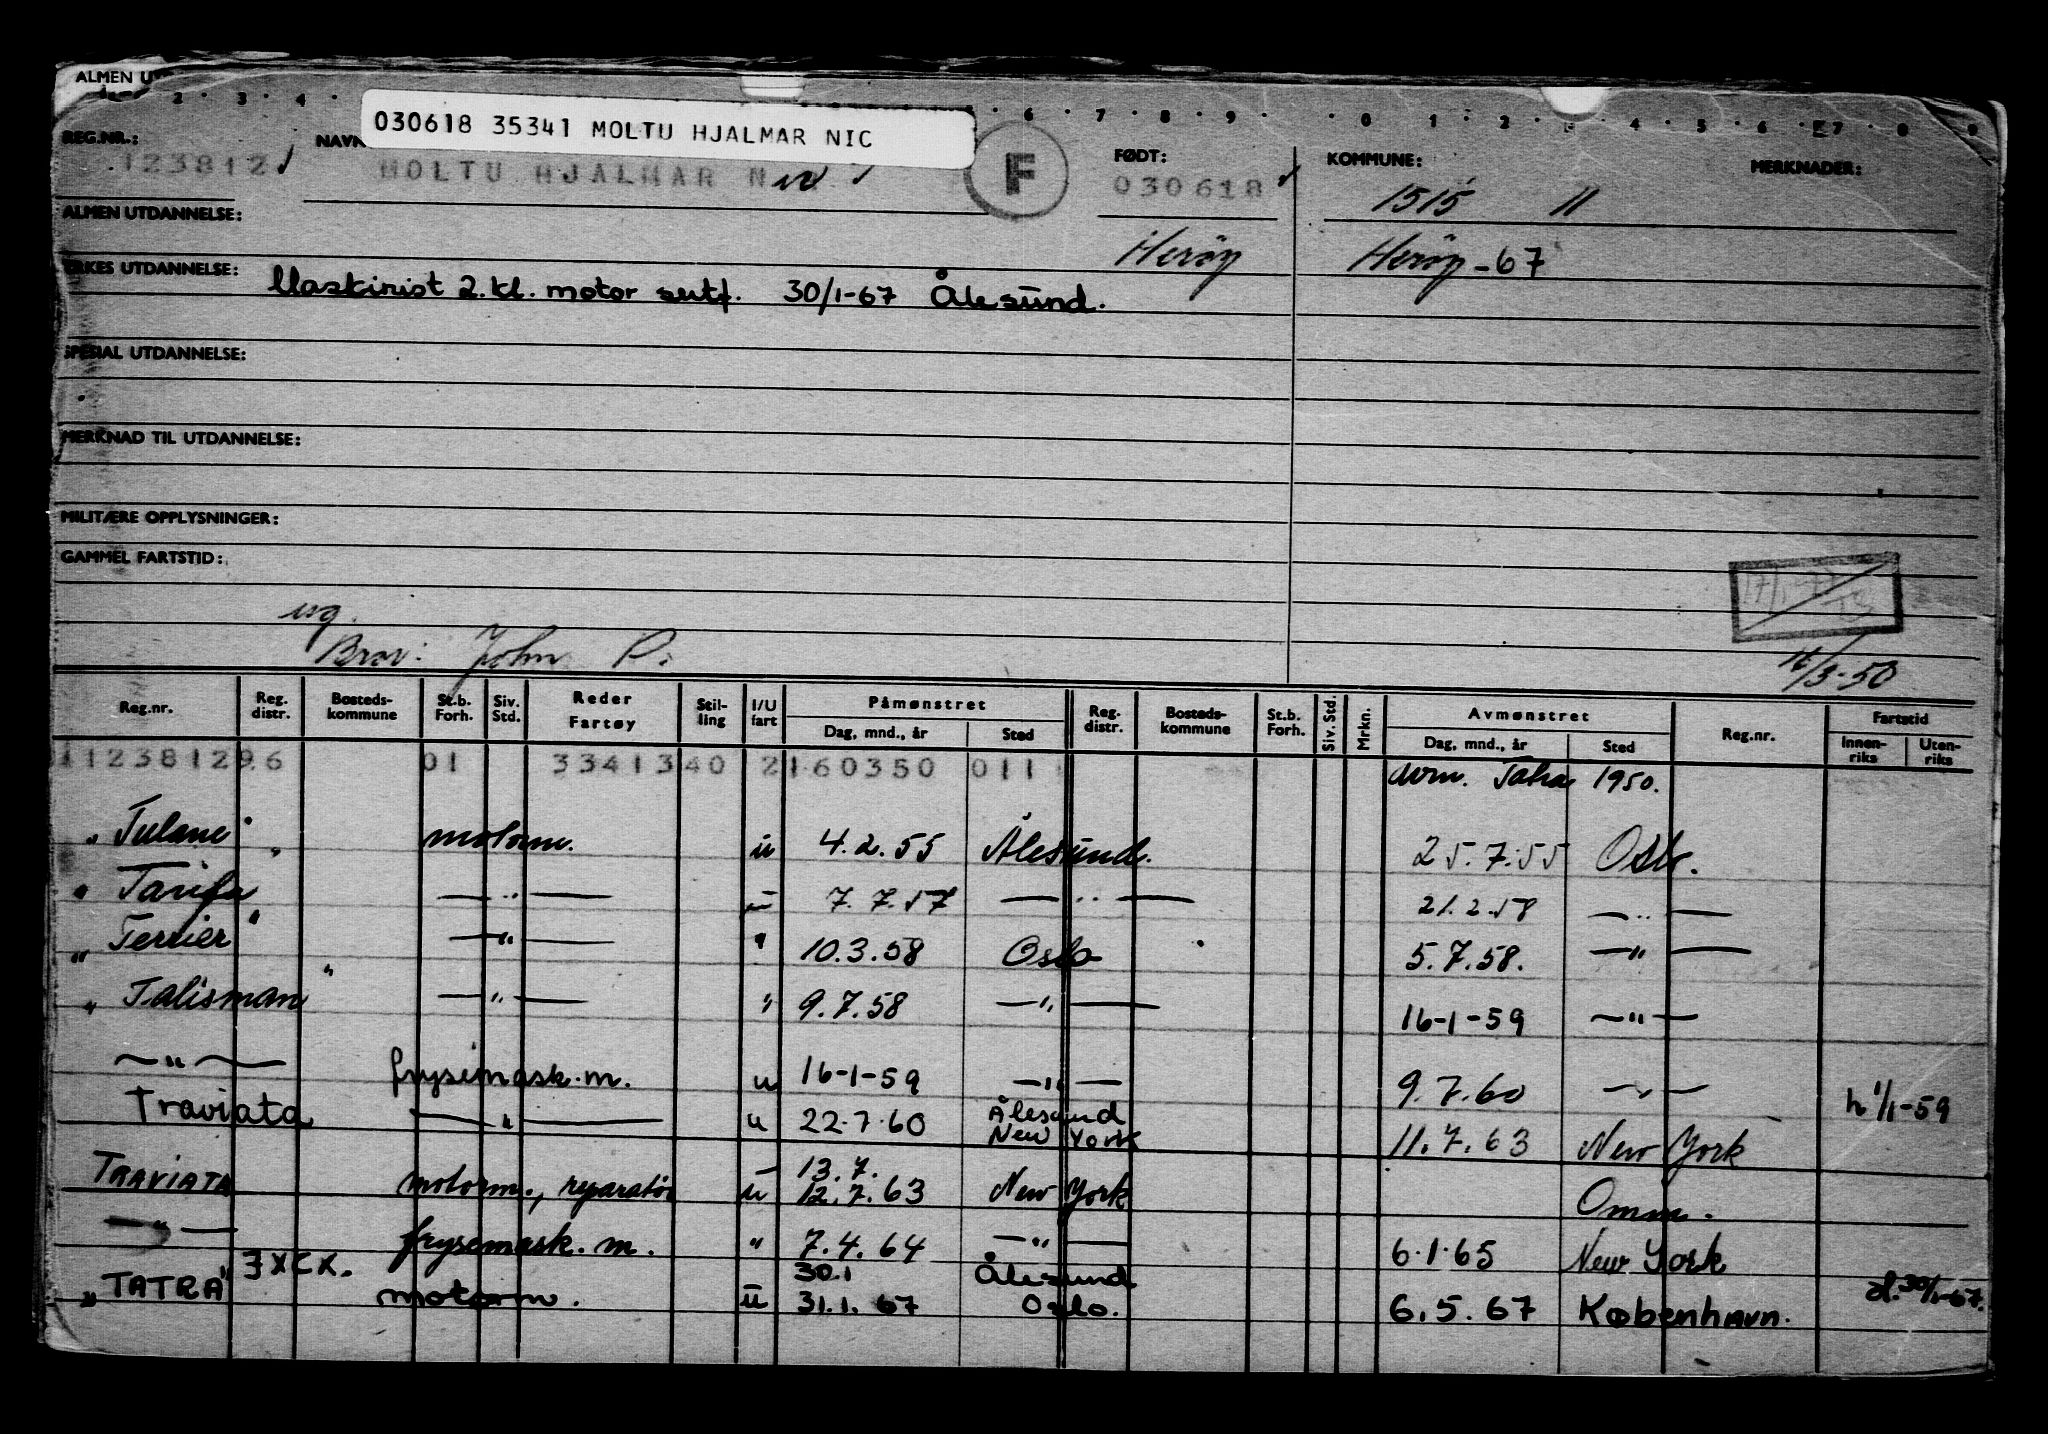 ALMEN
2 · 3 · 4 · 6 · 7 · 8 · 9 · 0 1 · 2 · 4 · 5 · 6 · 7 8 9
030618 35341 MOLTU HJALMAR NIC
REG.NR.: NAVN FØDT: KOMMUNE: MERKNADER:
123812 MOLTU HJALMAR N F 030618 1515 11
ALMEN UTDANNELSE:
Herøy Herøy - 67
YRKES UTDANNELSE: Maskinist 2. kl. motor sertf. 30/1-67 Ålesund.
SPESIAL UTDANNELSE:
MERKNAD TIL UTDANNELSE:
MILITÆRE OPPLYSNINGER:
GAMMEL FARTSTID:
ug.
Bror: John P.
/3-50
Reg.nr. Reg. distr. Bosteds-kommune St.b. Forh. Siv. Std. Reder Fartøy Stil-ling I/U fart Påmønstret Dag, mnd., år Sted Reg. distr. Bosteds-kommune St.b. Forh. Siv. Std. Mrkn. Avmønstret Dag, mnd., år Sted Reg.nr. Fartstid Innen-riks Uten-riks
11238129.6 01 3341340 2 160350 011 1950.
" Tulane " motorm. u 4.2.55 Ålesund. 25.7.55 Oslo.
" Tarifa " — " — u 7.7.57 — " — 21.2.58 — " —
" Terrier " — " — " 10.3.58 Oslo 5.7.58. — " —
" Talisman " — " — " 9.7.58 — " — 16-1-59 — " —
— " — frysemask.m. u 16-1-59 — " — 9.7.60 — " — 1/1-59
Traviata — " — u 22.7.60 Ålesund New York 11.7.63 New York
TRAVIATA motorm., reparatør u 13.7. 12.7.63 New York Omm.
— " — frysemask. m. " 7.4.64 — " — 6.1.65 New York
" TATRA " JXCX. motorm. u 30.1 31.1.67 Ålesund Oslo. 6.5.67 København. d. 30/1-67.